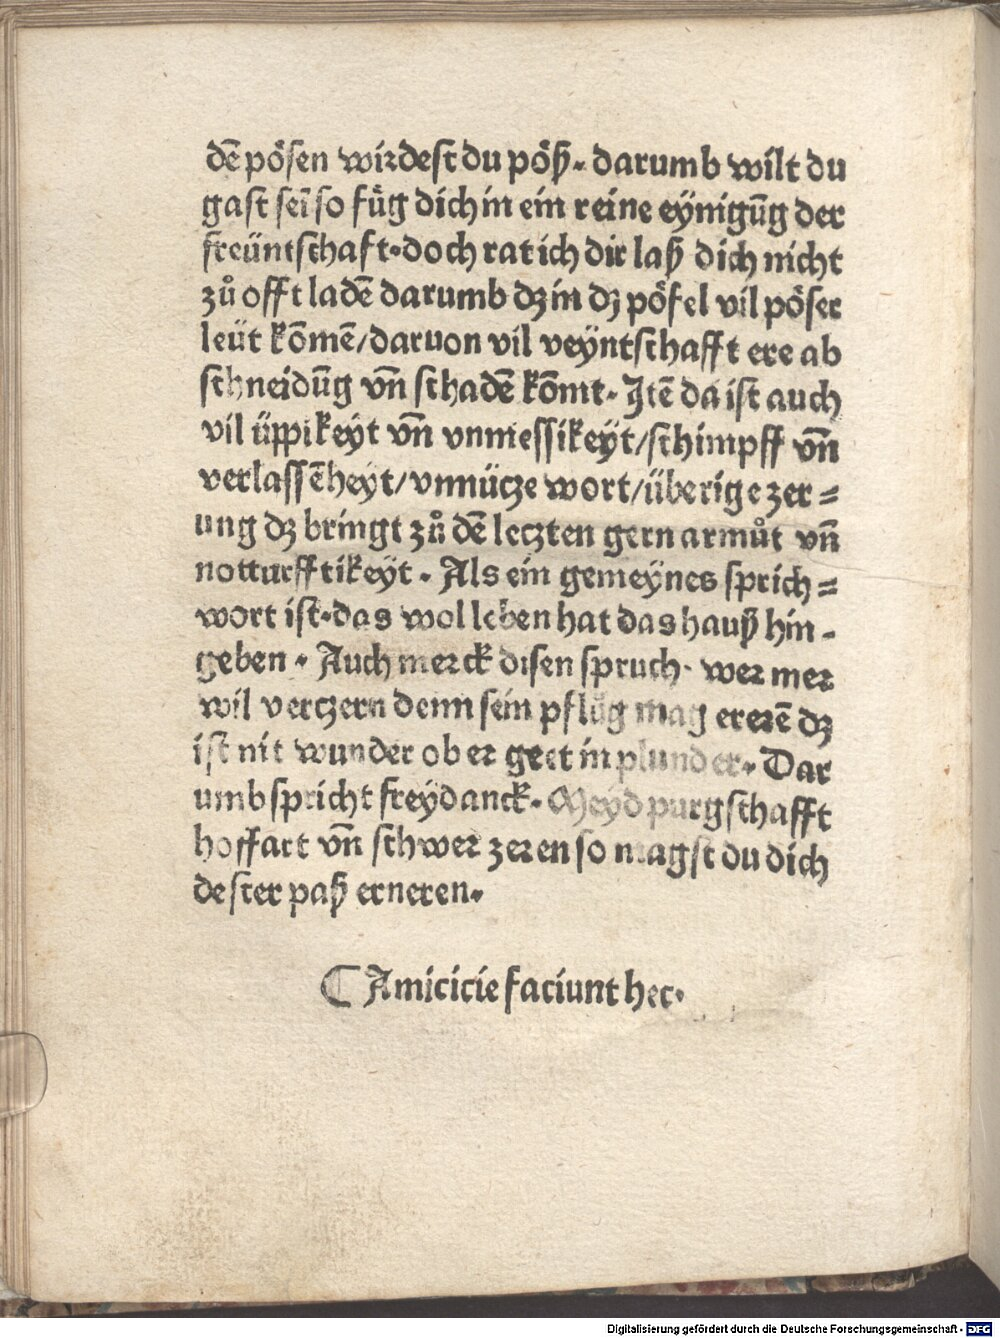 dē pösen wirdest du pöß. darumb wilt du
gast sei so fůg dich in ein reine eÿnigūg der
freüntschaft. doch rat ich dir laß dich nicht
zů offt ladē darumb dz in dz pöfel vil pöser
leüt kōmē/daruon vil veÿntschafft ere ab
schneidūg vn̄ schadē kōmt. Itē da ist auch
vil üppikeÿt vn̄ vnmessikeÿt/schimpff vn̄
verlassēheyt/vnnücze wort/überige zer=
ung dz bringt zů dē leczten gern armůt vn̄
notturfftikeÿt. Als ein gemeÿnes sprich=
wort ist. das wol leben hat das hauß hin-
geben. Auch merck disen spruch. wer mer
wil verczern denn sein pflůg mag ererē dz
ist nit wunder ob er geet in plunder. Dar
umb spricht freÿdanck. Meÿd purgschafft
hoffart vn̄ schwer zeren so magst du dich
dester paß erneren.
⸿ Amicicie faciunt hec.
Digitalisierung gefördert durch die Deutsche Forschungsgemeinschaft - DFG